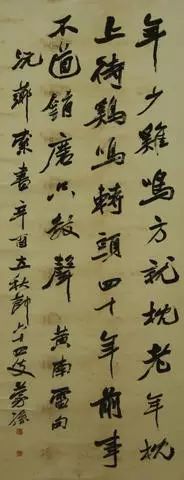 年少雞鳴方就枕老年枕
上待鷄鳴轉頭四十年前事
不道銷磨只數聲 黃南雷句
索書辛酉立秋節六十四叟